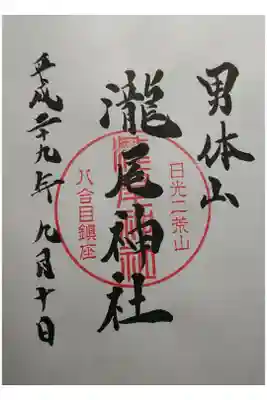 男体山
日光二荒山
瀧尾神社
八合目鎮座
平成二十九年九月十日